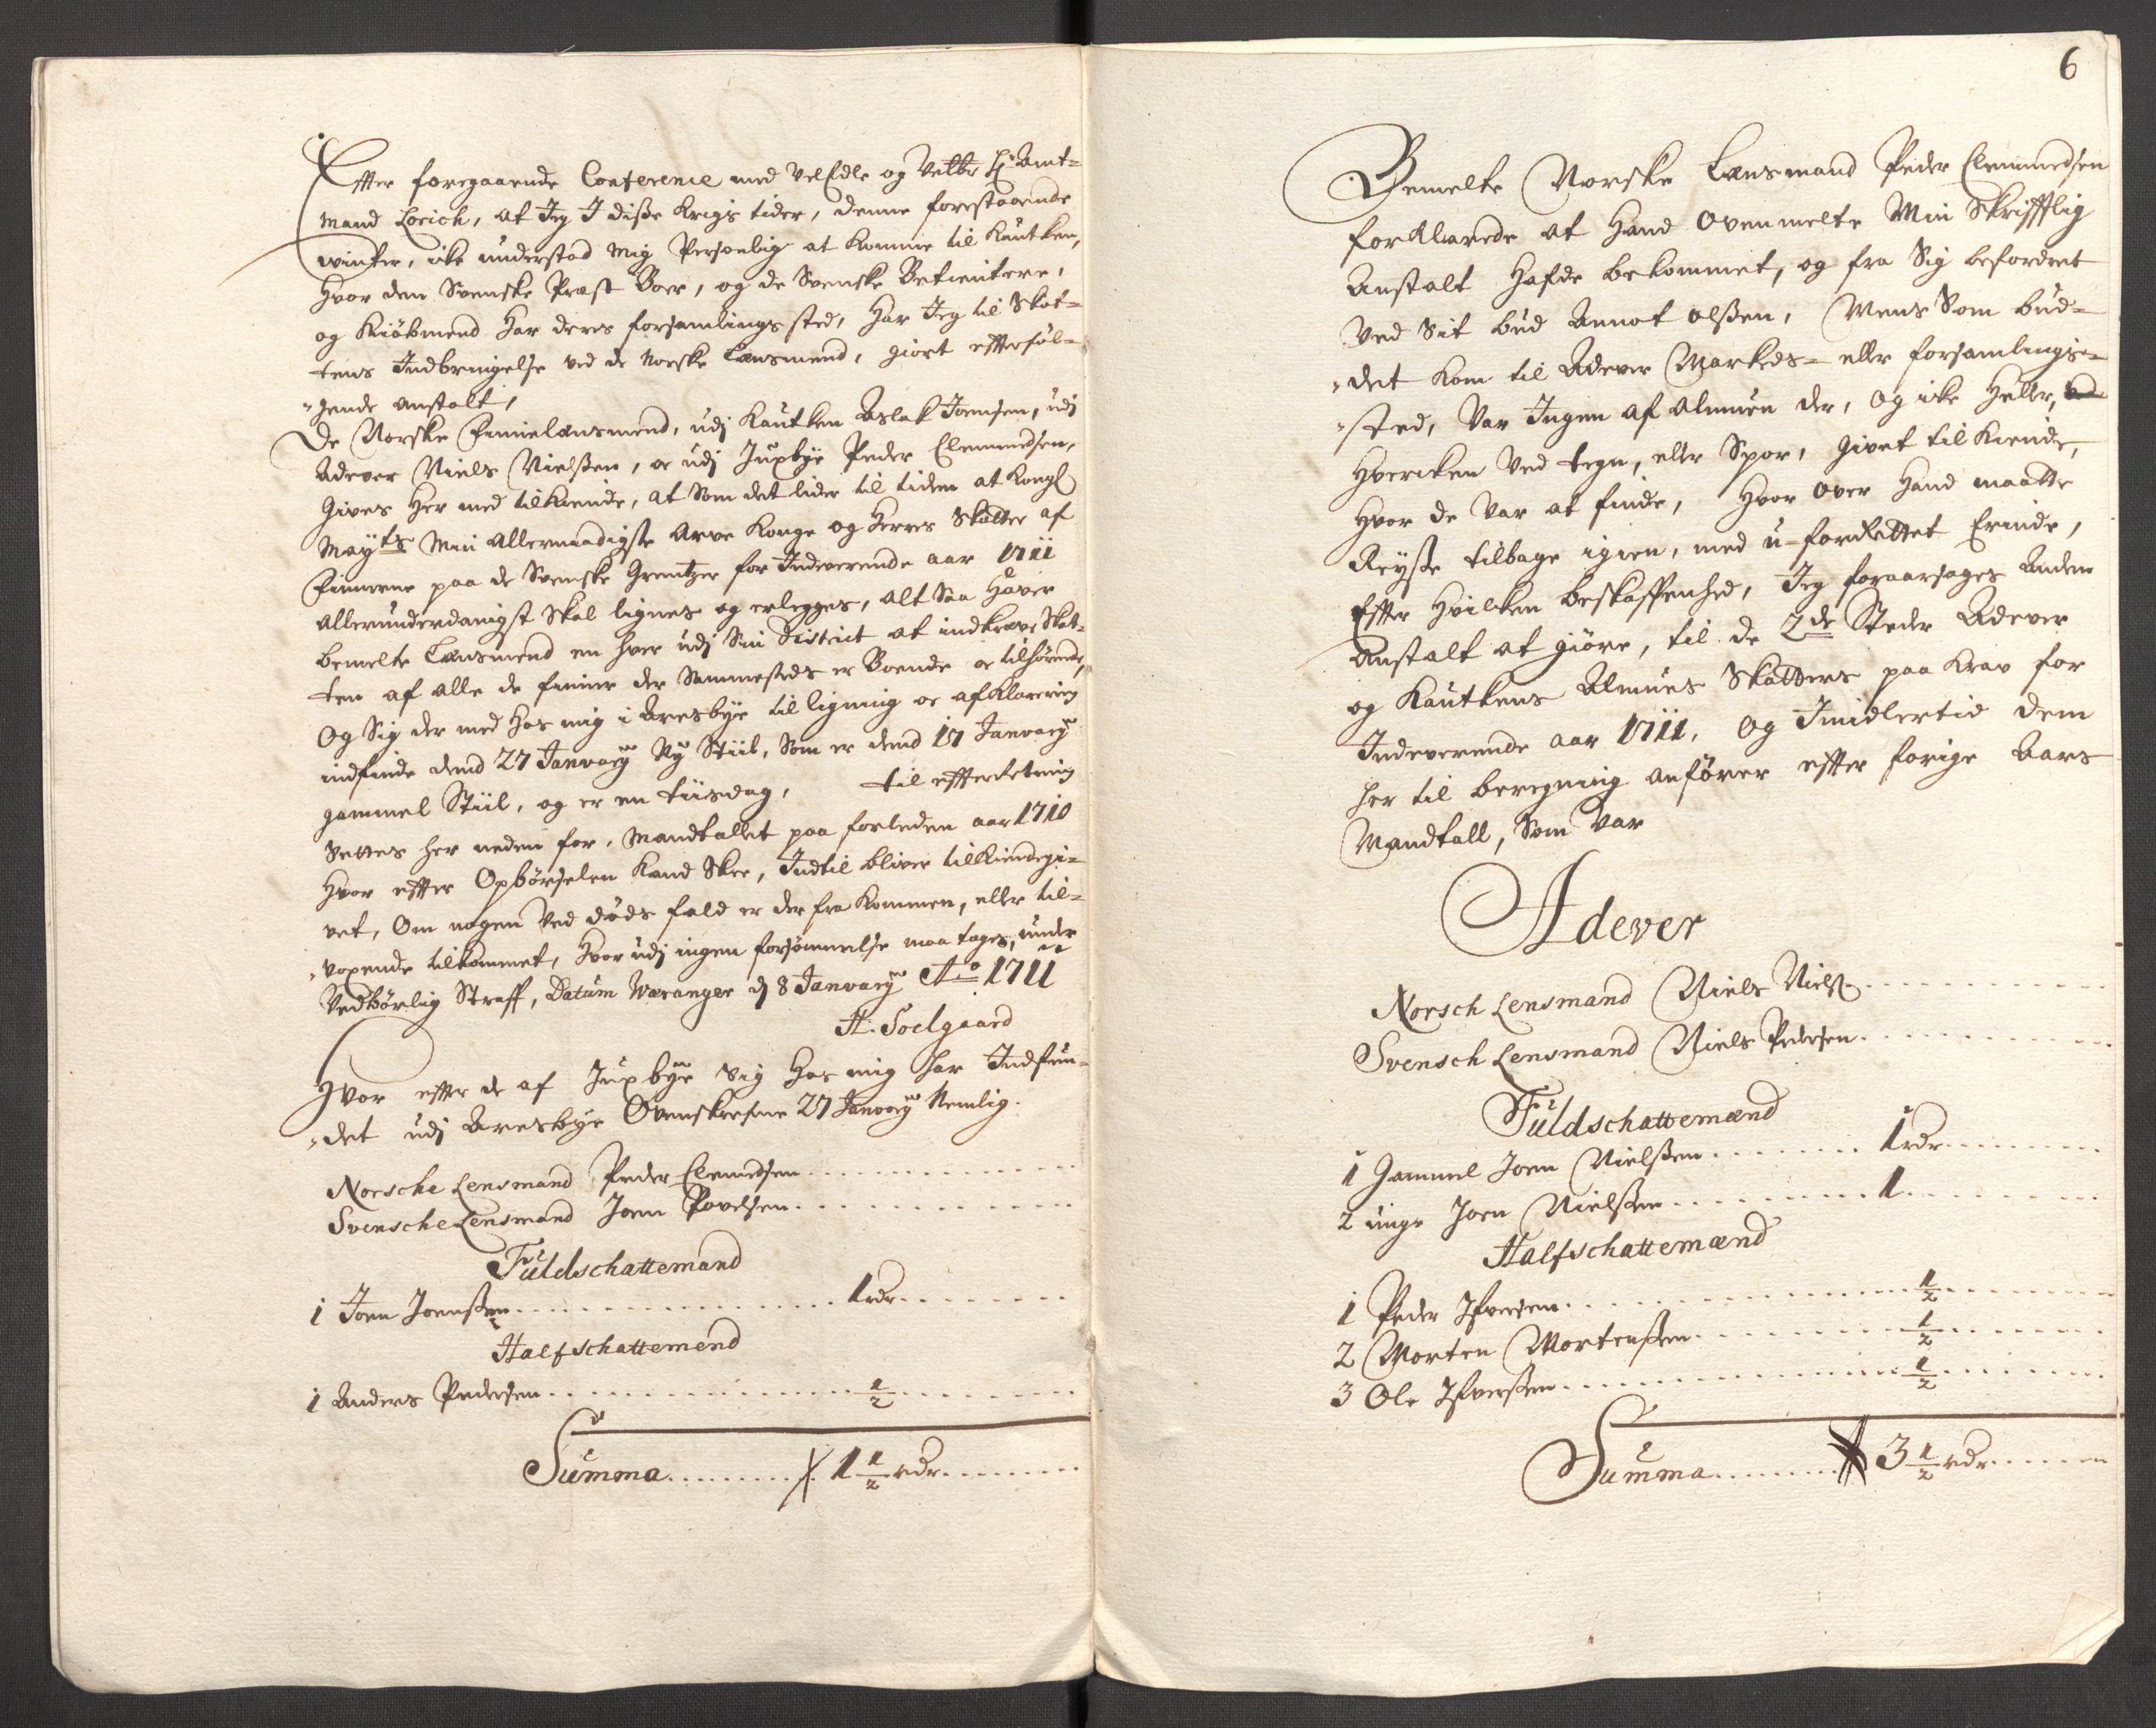 Effter foregaaende Conference med VelEdle og Velbr Hr Amt-
mand Lorich, at Jeg J diße Krigs tider, denne forestaaende
winter, icke understod mig Personlig at komme til Kautken,
hvor den Svenske Præst Boer, og de Svenske Betientere,
og Kiöbmend har deres forsamlings sted, har Jeg til Skat-
tens Indbringelse ved de Norske Lensmend, giort effterføl-
gende anstalt,
De Norske Finnelensmend, udj Kautken Aslak Joensen, udj
Adever Niels Nielßen, oc udj Juxbye Peder Clemmedsen,
Gives her med tilkiende, at som det lider til tiden at Kongl
Mayts Min Allernaadigste Arve Konge og Herres Skatter af
Finnerne paa de Svenske Grentzer for Indeverende aar 1711
allerunderdanigst skal lignes og erlegges, alt saa haver
bemelte Lensmend en hver udj Sin District at indkreve Skat-
ten af alle de finner der Sammesteds er Boende oc tilhörende,
Og Sig der med hos mig i Aresbye til ligning oc afklarering
indfinde dend 27 Janvary Ny Stiil, Som er dend 17 Janvary
gammel Stiil, og er en tiisdag, til effterretning
Settes her neden for, Mandtallet paa forleden aar 1710
hvor effter Opbörselen kand Skee, Indtil bliver tilkiendegi-
vet, Om nogen ved döds fald er der fra kommen, eller til-
voxende tilkommet, hvor udj ingen forsömmelse maa tages, under
Vedbörlig Straff, Datum Waranger dj 8 Janvary Ao 1711
H: Soelgaard
Hvor effter de af Juxbye Sig hos mig har Indfun-
det udj Aresbye Ovenskrefne 27 Janvary Nemlig.
Norsche Lensmand Peder Clemedsen
Svensche Lensmand Joen Povelsen
Fuldschattemand
1 Joen Joenßen 1 rdr
Halfschattemend
1 Anders Pedersen 1/2
Summa 1 1/2 rdr
6
Bemelte Norske Lensmand Peder Clemmedsen
forklarede at hand Ovenmelte Min Skrifftlig
Anstalt hafde bekommet, og fra Sig befordret
Ved Sit bud Annot Olßen, Mens Som bud-
det kom til Adever Markeds- eller forsamlings-
sted, Var Ingen af Almuen der, og icke heller, ved
hvercken Ved tegn, eller Spor, givet tilkiende,
hvor de var at finde, hvor over hand maatte
Reyße tilbage igien, med u-forrettet Erinde,
Effter hvilcken beskaffenhed, Jeg foraarsages Anden
Anstalt at giöre, til de 2de Steder Adever
og Kautkens Almues Skatters paa krav for
Indeverende aar 1711, Og Imidlertid dem
her til beregning anförer effter forige Aars
Mandtall, Som Var
Adever
Norsch Lensmand Niels Nielß
Svensch Lensmand Niels Pedersen
Fuldschattemænd
1 Gammel Joen Nielßen 1 rdr
2 unge Joen Nielßen 1
Halfschattemænd
1 Peder Ifversen 1/2
2 Morten Mortenßen 1/2
3 Ole Ifverßen 1/2
Summa 3 1/2 rdr